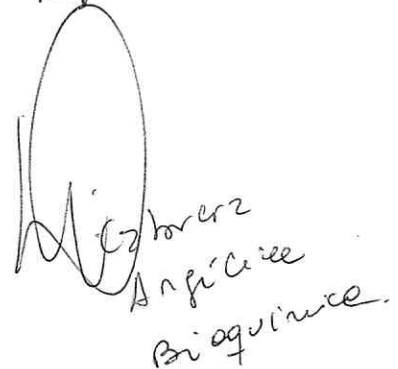 Cabrera
Angélica
Bioquímica.